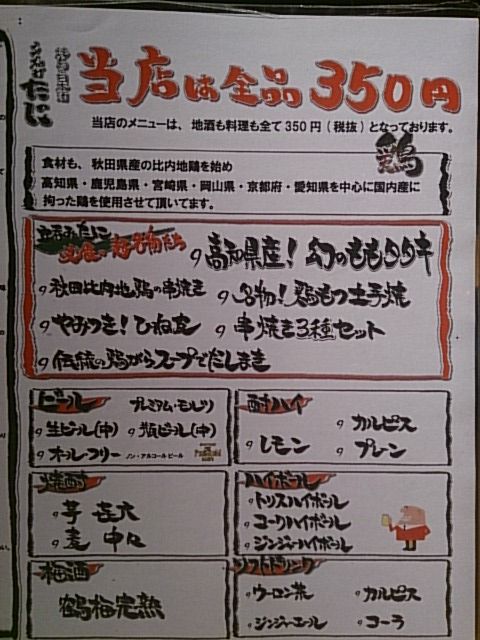 当店は全品350円
当店のメニューは、地酒も料理も全て350円(税抜)となっております。
鶏
食材も、秋田県産の比内地鶏を始め
高知県・鹿児島県・宮崎県・岡山県・京都府・愛知県を中心に国内産に
拘った鶏を使用させて頂いてます。
高知県産!幻のももタタキ
秋田比内地鶏の串焼き
名物!鶏もつ土手焼
やみつき!ひね皮
串焼き3種セット
伝統の鶏がらスープでだしまき
ビール
プレミアム・モルツ
生ビール(中)
瓶ビール(中)
オールフリー ノン・アルコールビール
酎ハイ
カルピス
レモン
プレン
焼酎
芋 㐂六
麦 中々
ハイボール
トリスハイボール
コークハイボール
ジンジャーハイボール
梅酒
鶴梅完熟
ソフトドリンク
ウーロン茶
カルピス
ジンジャーエール
コーラ